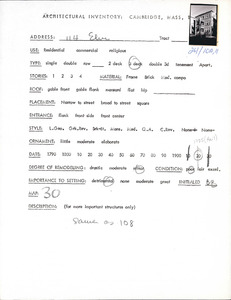 ARCHITECTURAL INVENTORY: CAMBRIDGE, MASS.
ADDRESS: 114 Elm Tract
USE: Residential commercial religious
TYPE: single double row 2 deck 3 deck double 3d Tenement Apart.
STORIES: 1 2 3 4 MATERIAL: Frame Brick Mod. compo
ROOF: gable front gable flank mansard flat hip
PLACEMENT: Narrow to street broad to street square
ENTRANCE: flank front side front center
STYLE:
ORNAMENT: little moderate elaborate
DATE: 1790 1800 10 20 30 40 50 60 70 80 90 1900 10 20 30
DEGREE OF REMODELING: drastic moderate minor CONDITION: poor fair excel.
IMPORTANCE TO SETTING: detrimental none moderate great INITIALED B.R.
MAP 30
DESCRIPTION: (for more important structures only)
Same as 108